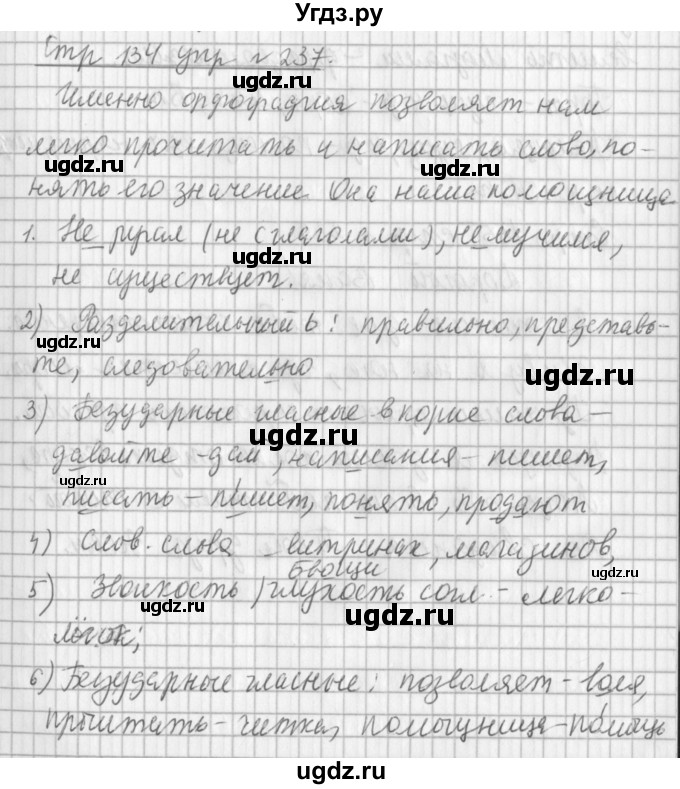 Угдз.ру
Стр 134 упр № 237.
ugdz.ru
Именно орфография позволяет нам
легко прочитать и написать слово, по-
ugdz.ru ugdz.ru
нять его значение Она наша помощница
1. Не играл (не с глаголами), не мучился,
ugdz.ru
не существует.
2) Разделительный ь: правильно, представь-
ugdz.ru
те, следовательно
ugdz.ru
3) Безударные гласные в корне слова –
ugdz.ru
давайте - дам, написания – пишет,
ugdz.ru
писать – пишет, понять, продают
4) Слов. слова – витринах, магазинов,
овощи
ugdz.ru
5) Звонкость/глухость согл. – легко –
ugdz.ru ugdz.ru
лёгок;
6) Безударные гласные: позволяет – воля,
ugdz.ru
прочитать – читка, помощница – помощь
ugdz.ru
ugdz.ru